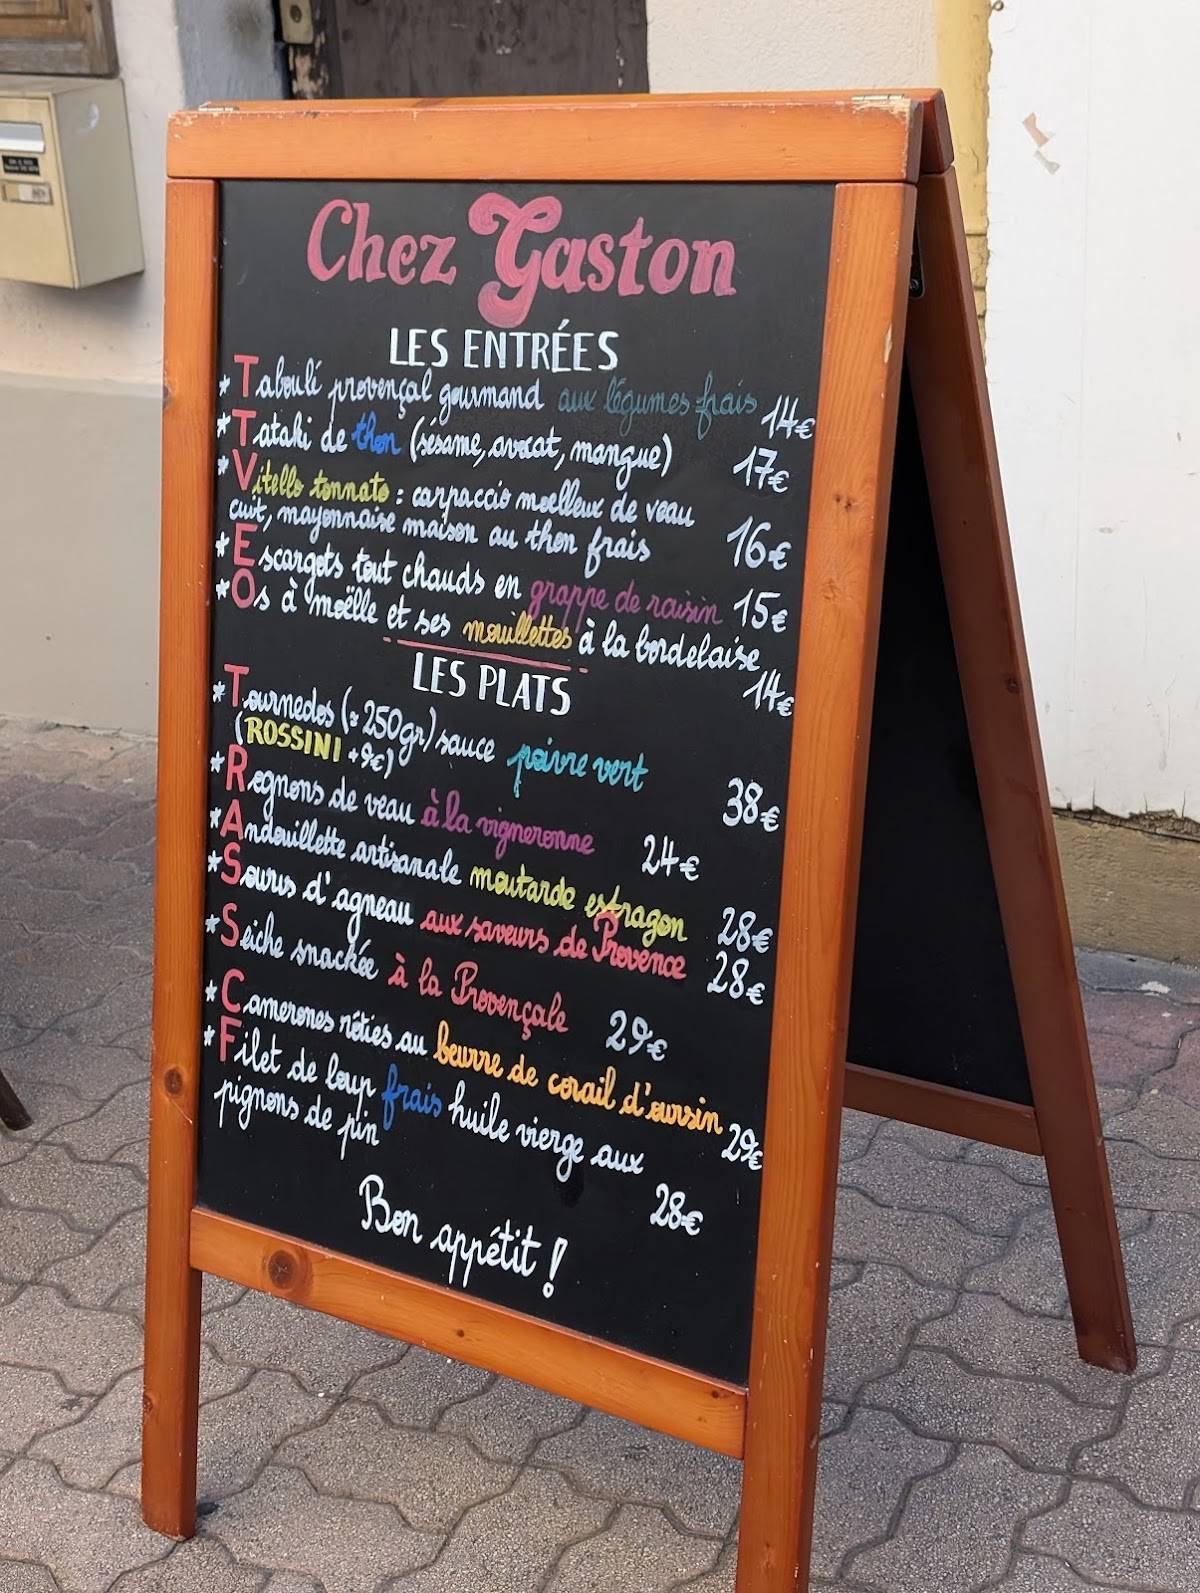 Chez Gaston
LES ENTRÉES
* Taboulé provençal gourmand aux légumes frais 14€
* Tataki de thon (sésame, avocat, mangue) 17€
* Vitello tonnato : carpaccio moelleux de veau
cuit, mayonnaise maison au thon frais 16€
* Escargots tout chauds en grappe de raisin 15€
* Os à moëlle et ses mouillettes à la bordelaise
14€
LES PLATS
* Tournedos (≈ 250gr) sauce poivre vert
(ROSSINI +9€) 38€
* Rognons de veau à la vigneronne 24€
* Andouillette artisanale moutarde estragon 28€
* Souris d'agneau aux saveurs de Provence 28€
* Seiche snackée à la Provençale 29€
* Camerones rôties au beurre de corail d'oursin
29€
* Filet de loup frais huile vierge aux
pignons de pin 28€
Bon appétit !